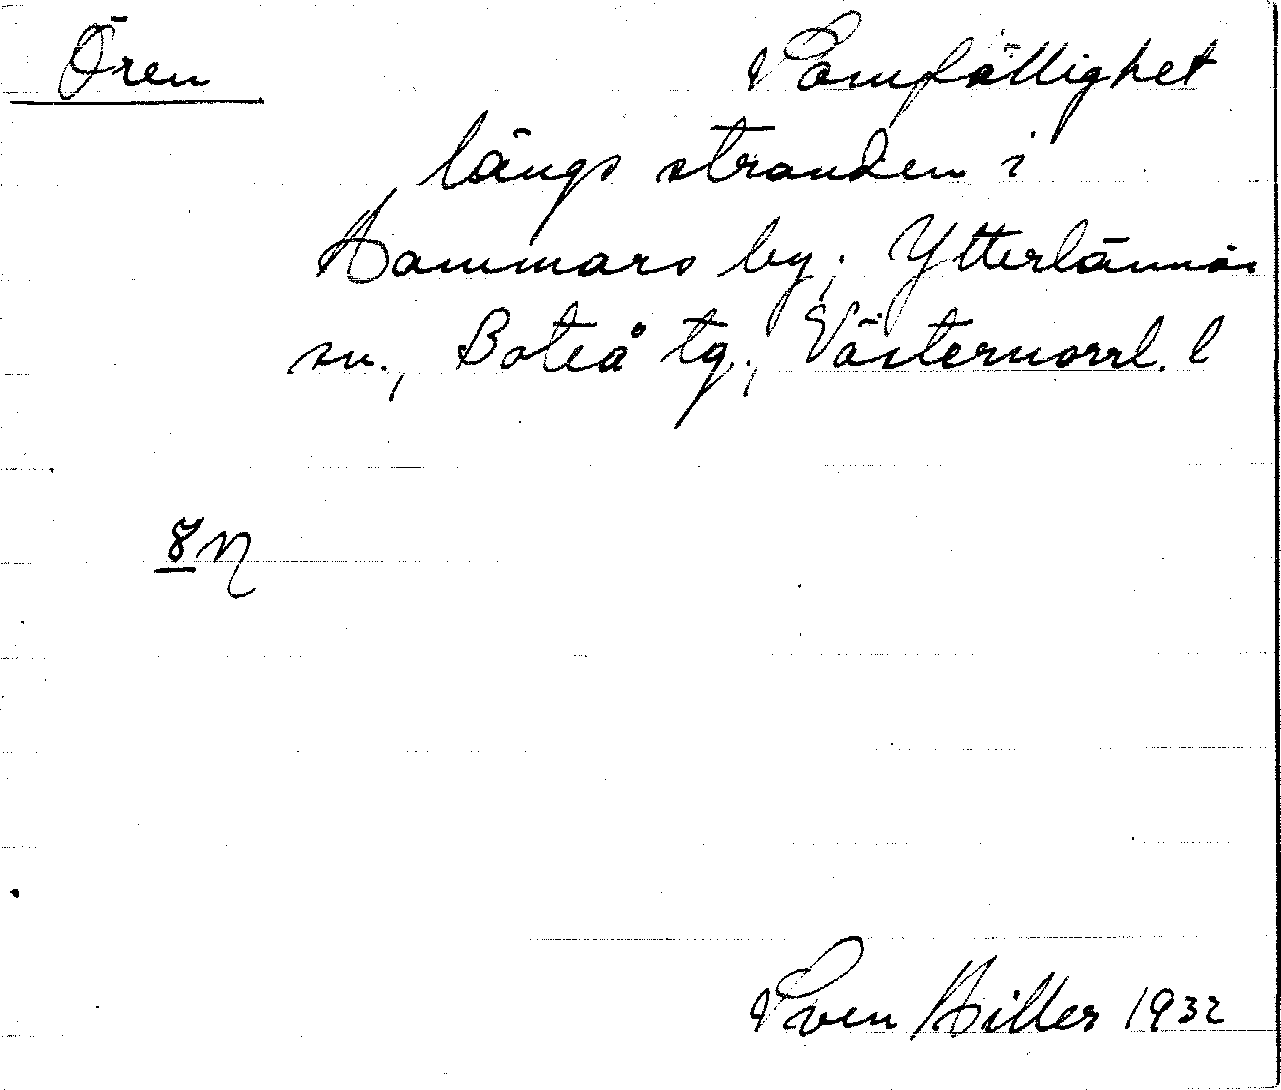 Ören Samfällighet
längs stranden i
Hammars by, Ytterlännäs
sn., Boteå tg., Västernorrl. l
8
Sven Hiller 1932